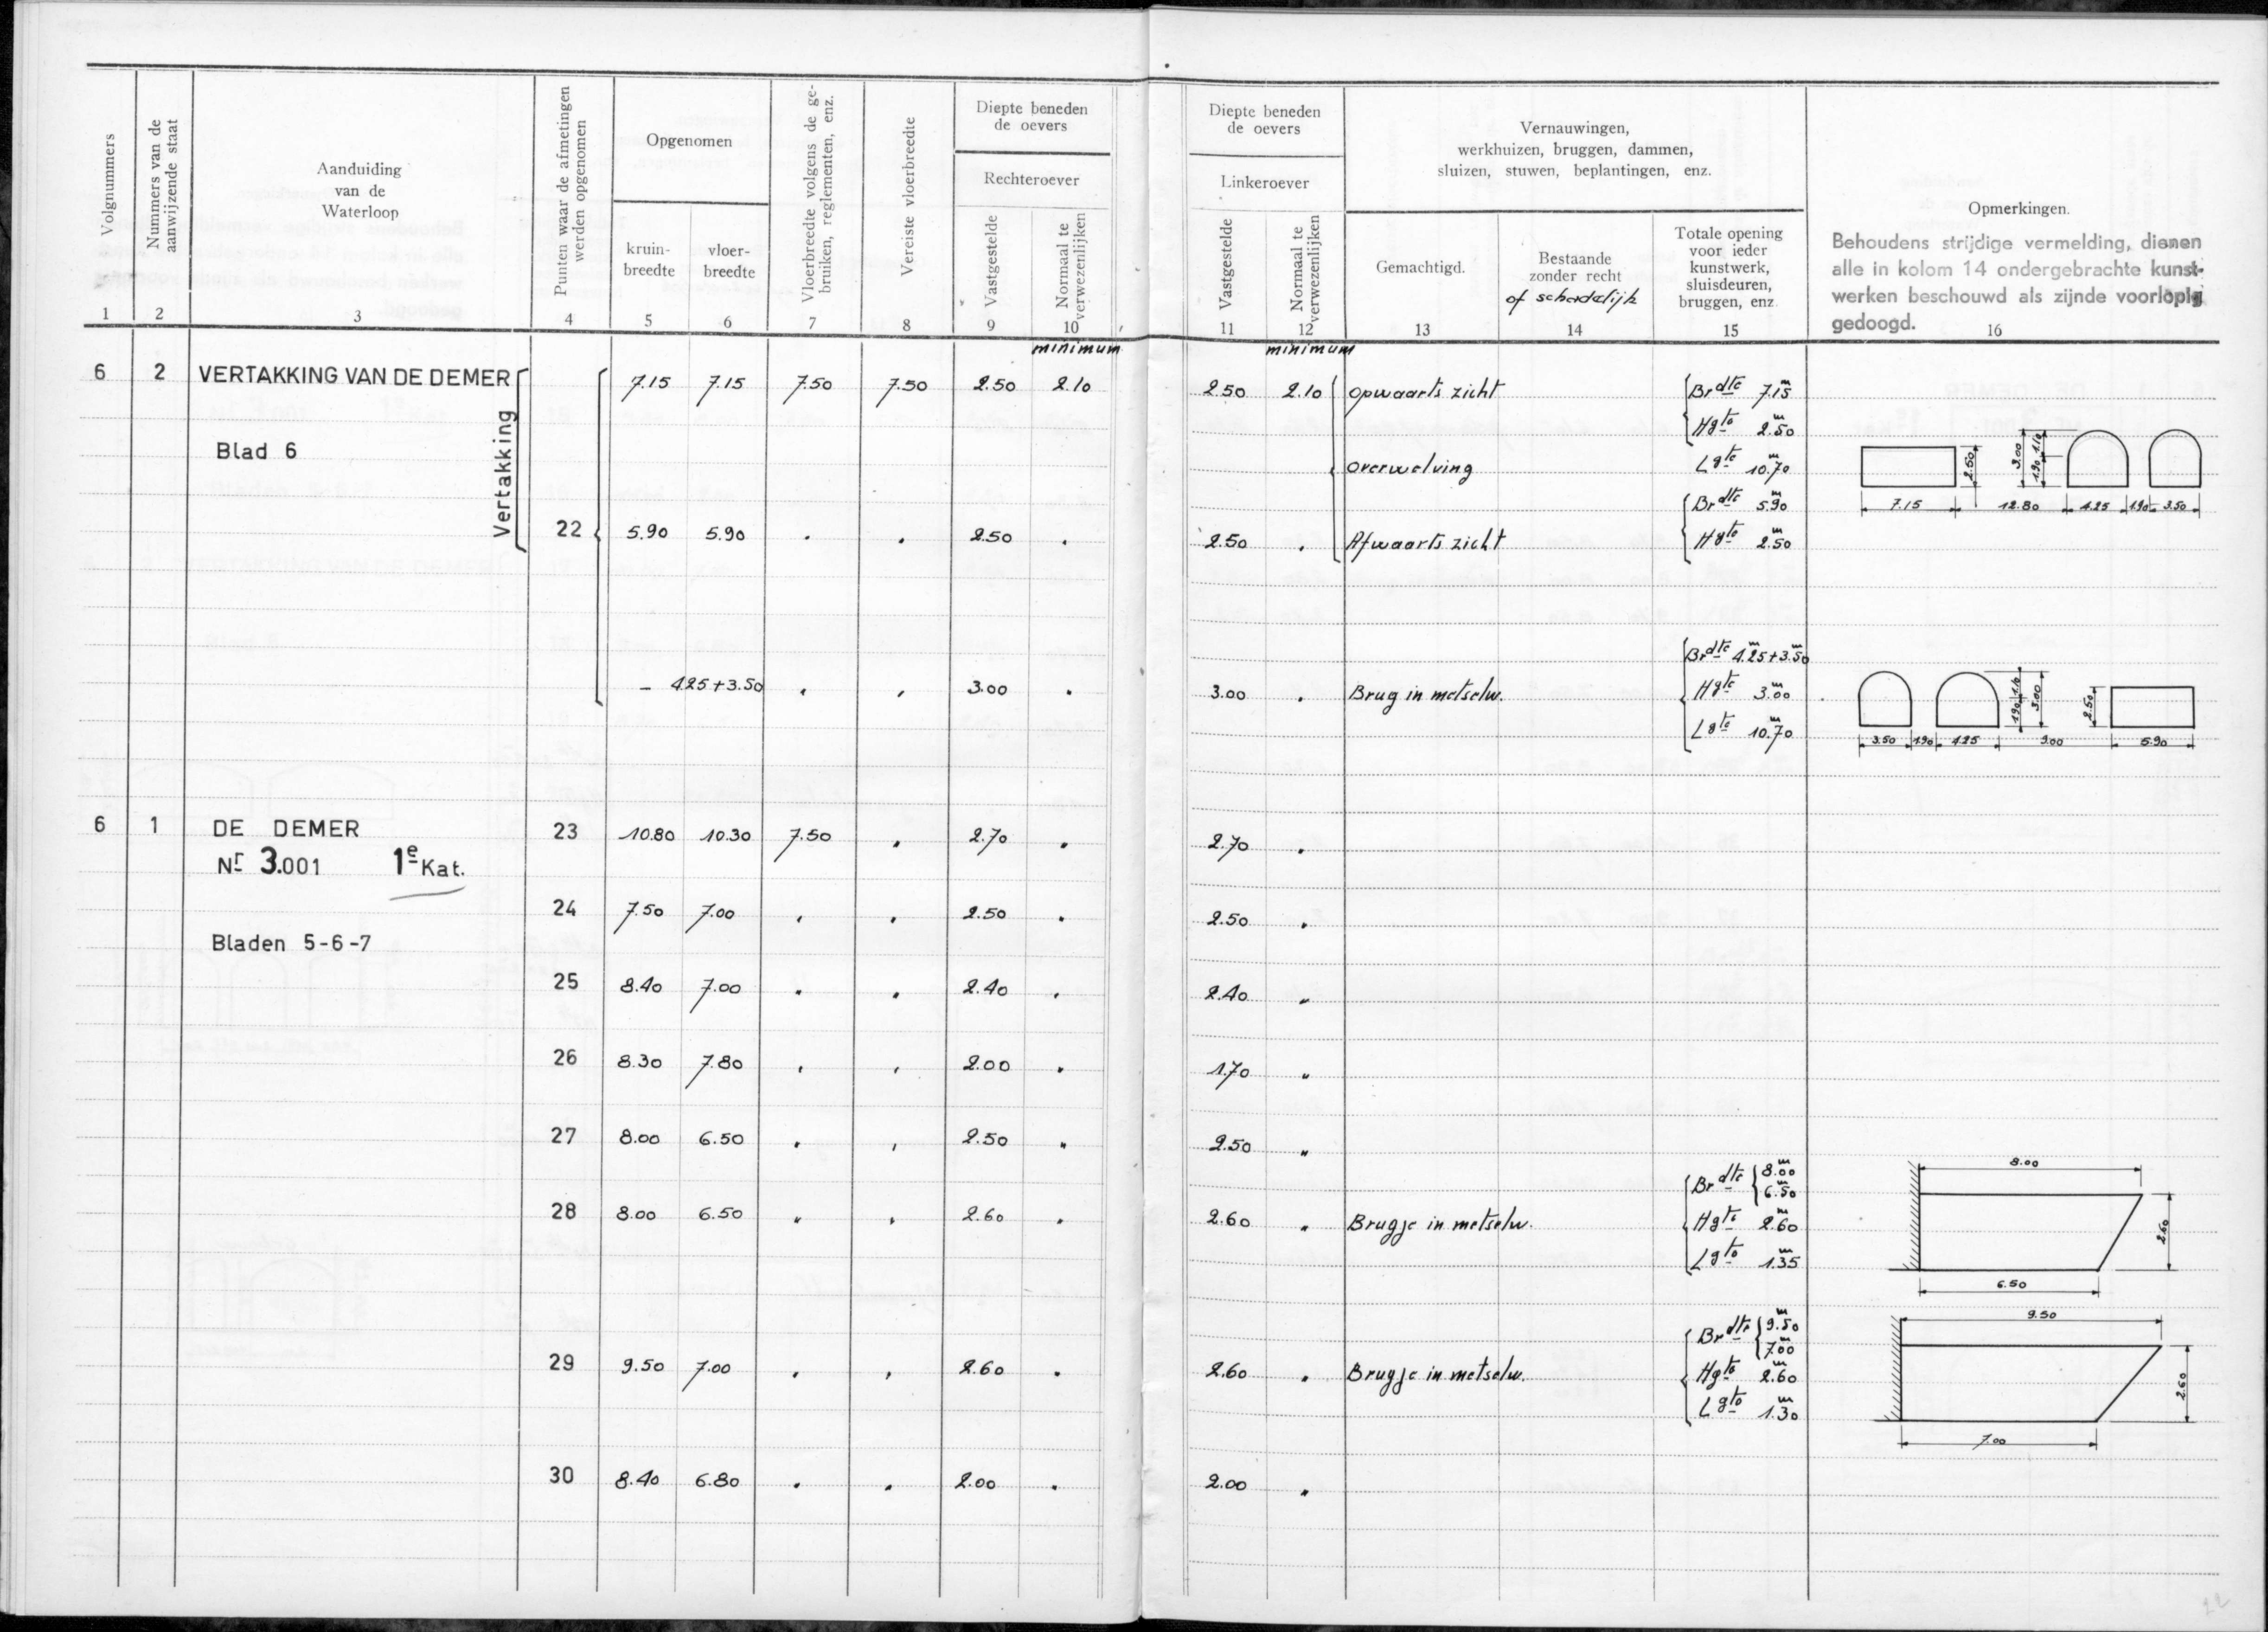 Volgnummers
Nummers van de
aanwijzende staat
Aanduiding
van de
Waterloop
Punten waar de afmetingen
werden opgenomen
Opgenomen
kruin-
breedte
vloer-
breedte
Vloerbreedte volgens de ge-
bruiken, reglementen, enz.
Vereiste vloerbreedte
Diepte beneden
de oevers
Rechteroever
Vastgestelde
Normaal te
verwezenlijken
Diepte beneden
de oevers
Linkeroever
Vastgestelde
Normaal te
verwezenlijken
Vernauwingen,
werkhuizen, bruggen, dammen,
sluizen, stuwen, beplantingen, enz.
Gemachtigd.
Bestaande
zonder recht
of schadelijk
Totale opening
voor ieder
kunstwerk,
sluisdeuren,
bruggen, enz.
Opmerkingen.
Behoudens strijdige vermelding, dienen
alle in kolom 14 ondergebrachte kunst-
werken beschouwd als zijnde voorlopig
gedoogd.
1 2 3 4 5 6 7 8 9 10 11 12 13 14 15 16
minimum minimum
6 2 VERTAKKING VAN DE DEMER 7.15 7.15 7.50 7.50 2.50 2.10 2.50 2.10 Opwaarts zicht Brdte 7.15 m
Hgte 2.50 m
Blad 6
Vertakking
Overwelving Lgte 10.70 m
2.50 3.00 1.90 1.10
7.15 12.80 4.25 1.90 3.50
Brdte 5.90 m
22 5.90 5.90 " " 2.50 " 2.50 " Afwaarts zicht Hgte 2.50 m
Brdte 4.25 m + 3.50 m
– 4.25 + 3.50 " " 3.00 " 3.00 " Brug in metselw. Hgte 3.00 m
Lgte 10.70 m
1.90 1.10 3.00 2.50
3.50 1.90 4.25 9.00 5.90
6 1 DE DEMER 23 10.80 10.30 7.50 " 2.70 " 2.70 "
Nr 3.001 1e Kat.
24 7.50 7.00 " " 2.50 " 2.50 "
Bladen 5-6-7
25 8.40 7.00 " " 2.40 " 2.40 "
26 8.30 7.80 " " 2.00 " 1.70 "
27 8.00 6.50 " " 2.50 " 2.50 "
Brdte 8.00 m
6.50 m
28 8.00 6.50 " " 2.60 " 2.60 " Brugje in metselw. Hgte 2.60 m
Lgte 1.35 m
8.00
2.60
6.50
Brdte 9.50 m
7.00 m
29 9.50 7.00 " " 2.60 " 2.60 " Brugje in metselw. Hgte 2.60 m
Lgte 1.30 m
9.50
2.60
7.00
30 8.40 6.80 " " 2.00 " 2.00 "